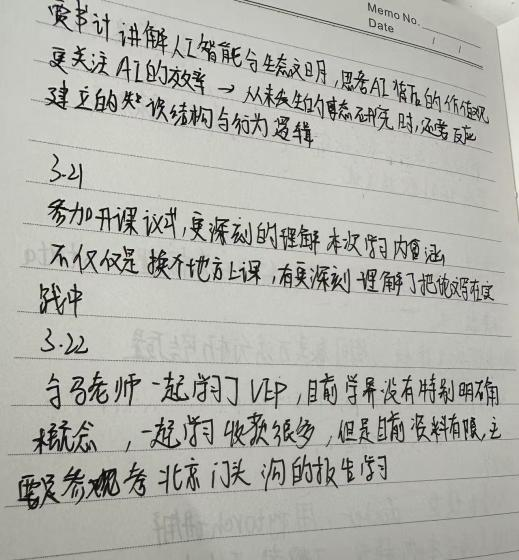 Memo No.
Date / /
贾书计讲解人工智能与生态文明,思考AI背后的价值观
更关注AI的效率→从未发生的事态研究时,还需反应
建立的知识结构与行为逻辑
3.21
参加开课议式,更深刻的理解本次学习内涵
不仅仅是换个地方上课,有更深刻理解了把论文写在实
践中
3.22
与马老师一起学习了VEP,目前学界没有特别明确
概念,一起学习收获很多,但是目前资料有限,主
要是参观考北京门头沟的报告学习